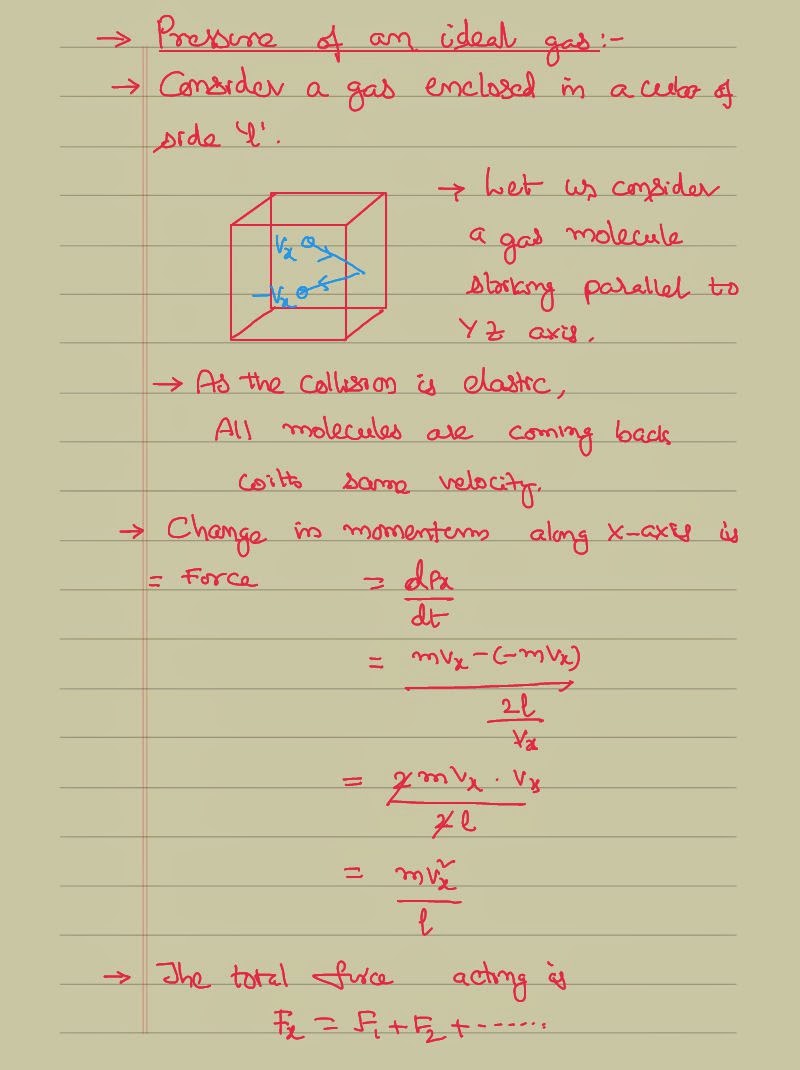 → Pressure of an ideal gas:-
→ Consider a gas enclosed in a cube of
side 'l'.
→ Let us consider
a gas molecule
striking parallel to
YZ axis.
Vx
-Vx
→ As the collision is elastic,
All molecules are coming back
with same velocity.
→ Change in momentum along x-axis is
= Force = dPx/dt
= mVx-(-mVx)
2l
Vx
= 2mVx . Vx
2l
= mVx²
l
→ The total force acting is
Fx = F1 + F2 + ------